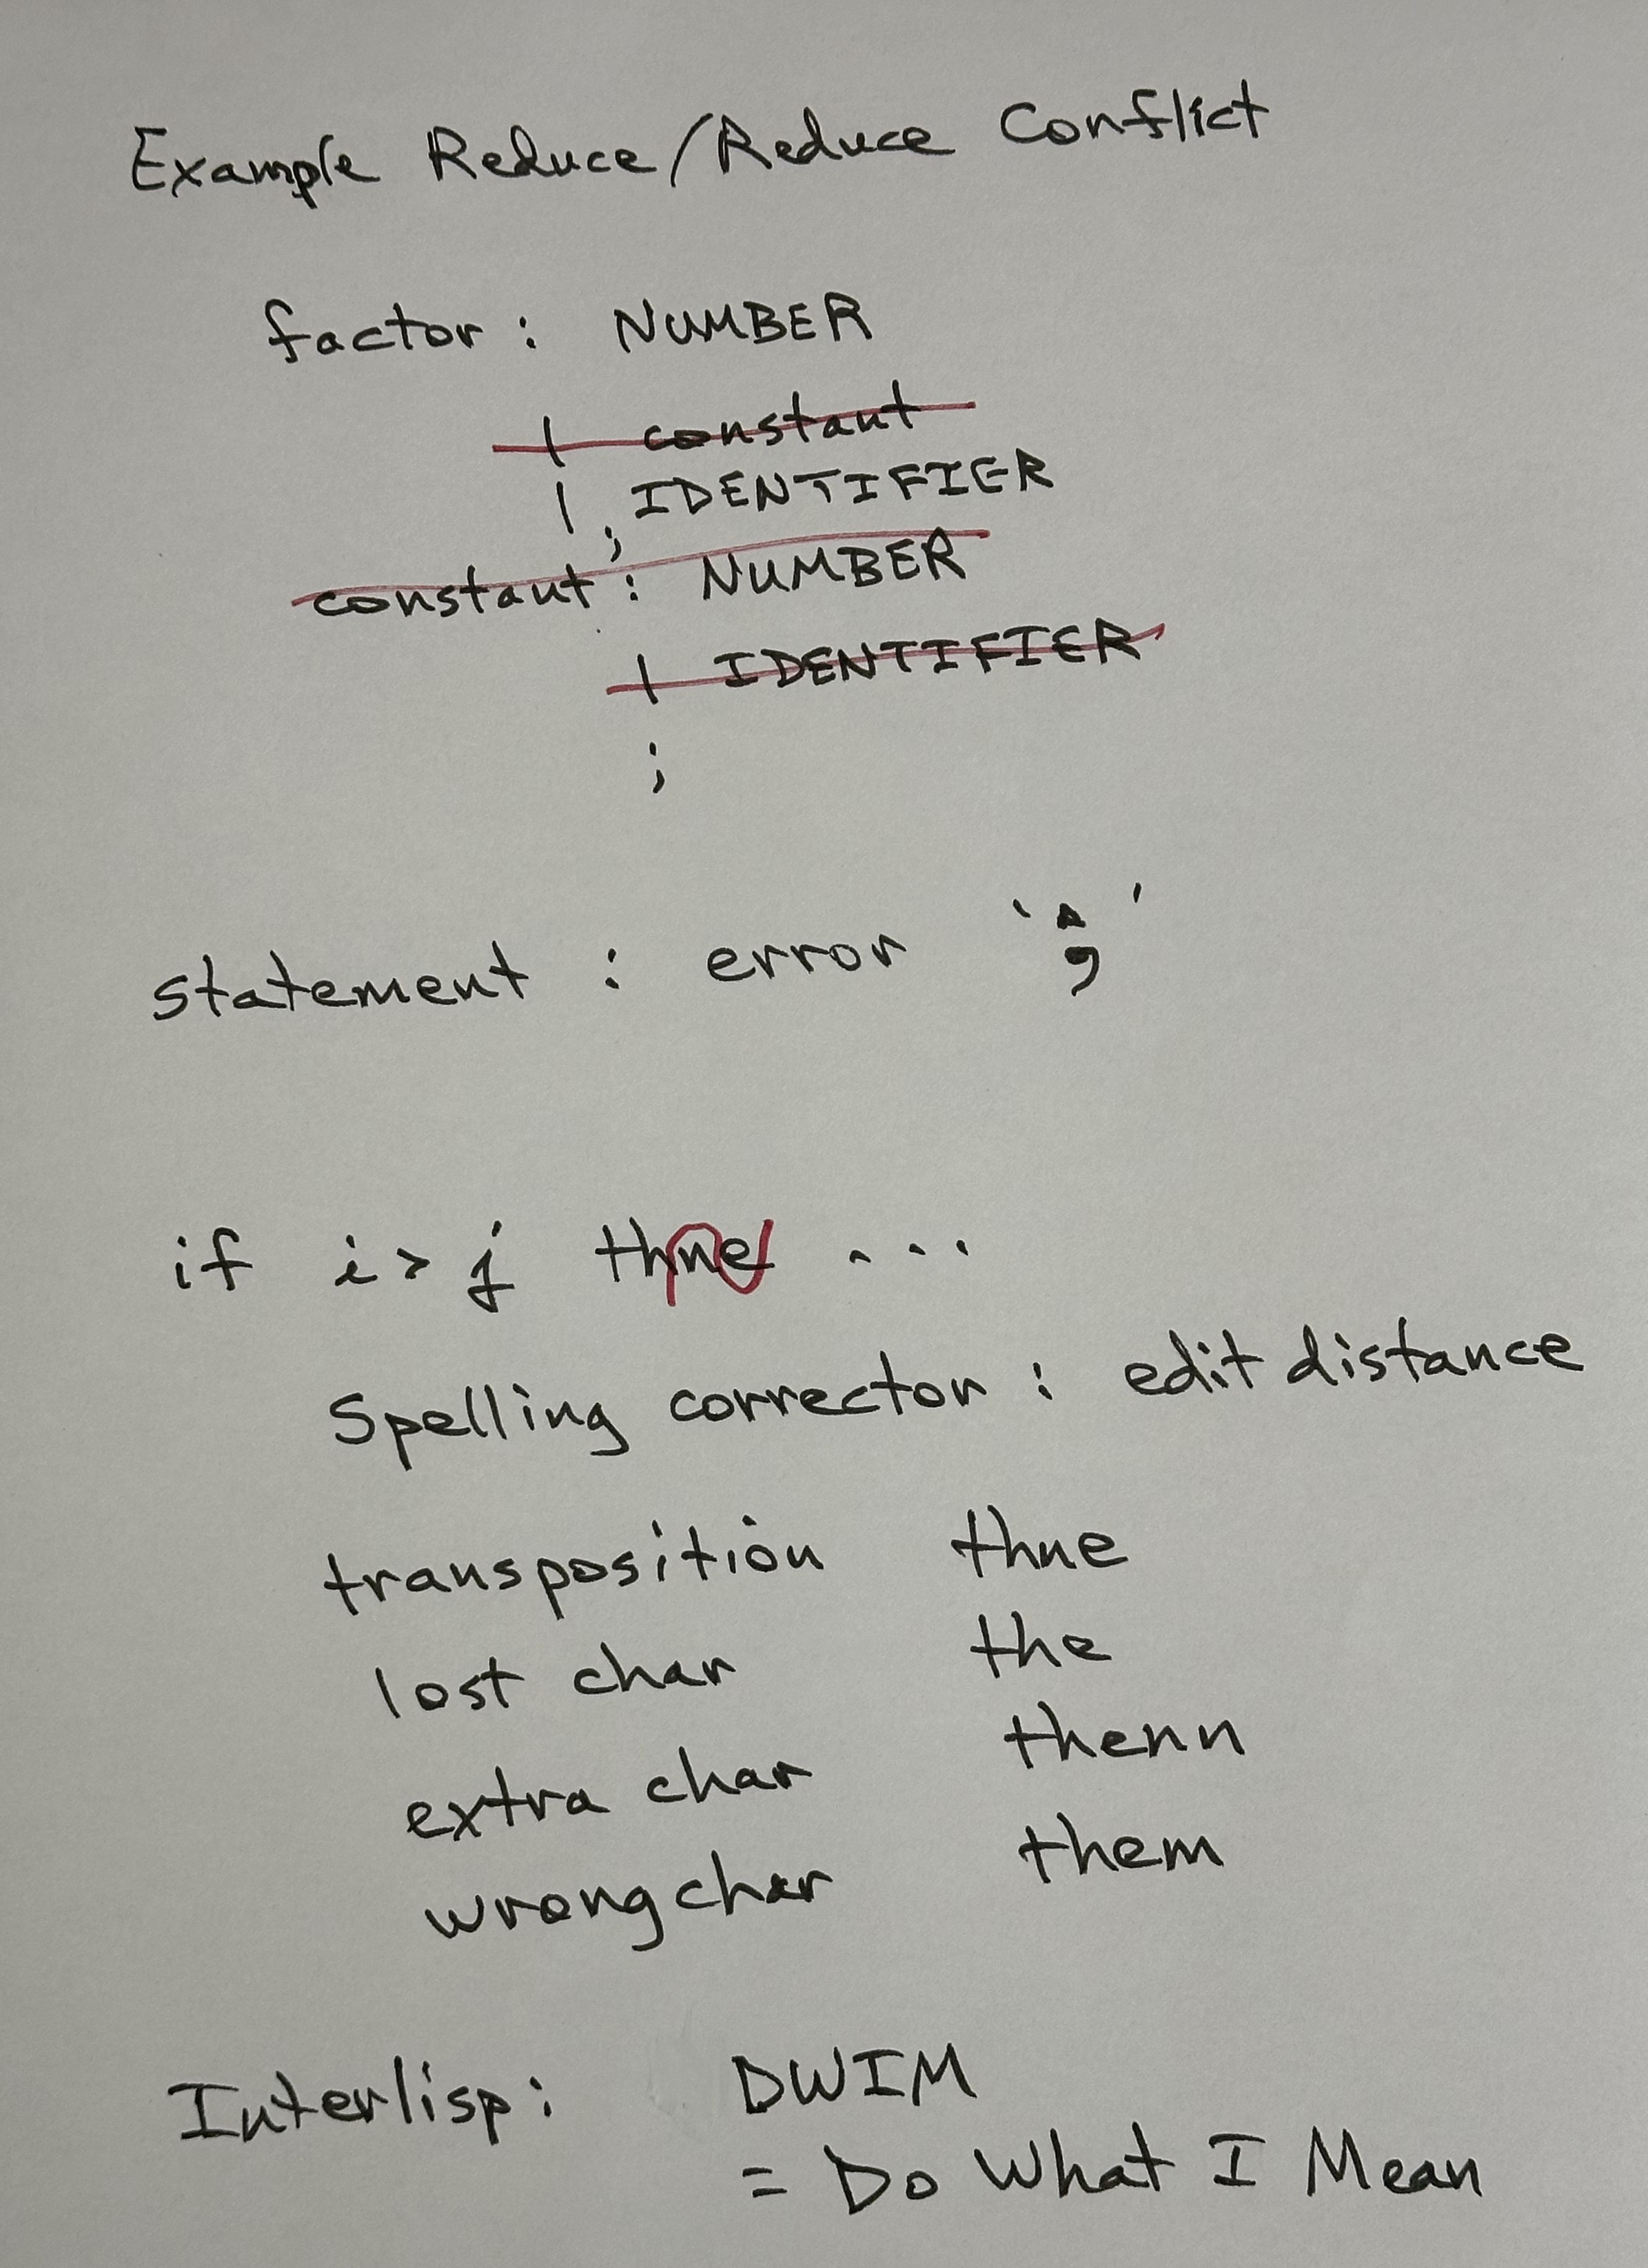 Example Reduce/Reduce Conflict
factor : NUMBER
| constant
| IDENTIFIER
;
constant : NUMBER
| IDENTIFIER
;
statement : error ';'
if i > j thne ...
Spelling corrector : edit distance
transposition thne
lost char the
extra char thenn
wrong char them
Interlisp: DWIM
= Do What I Mean